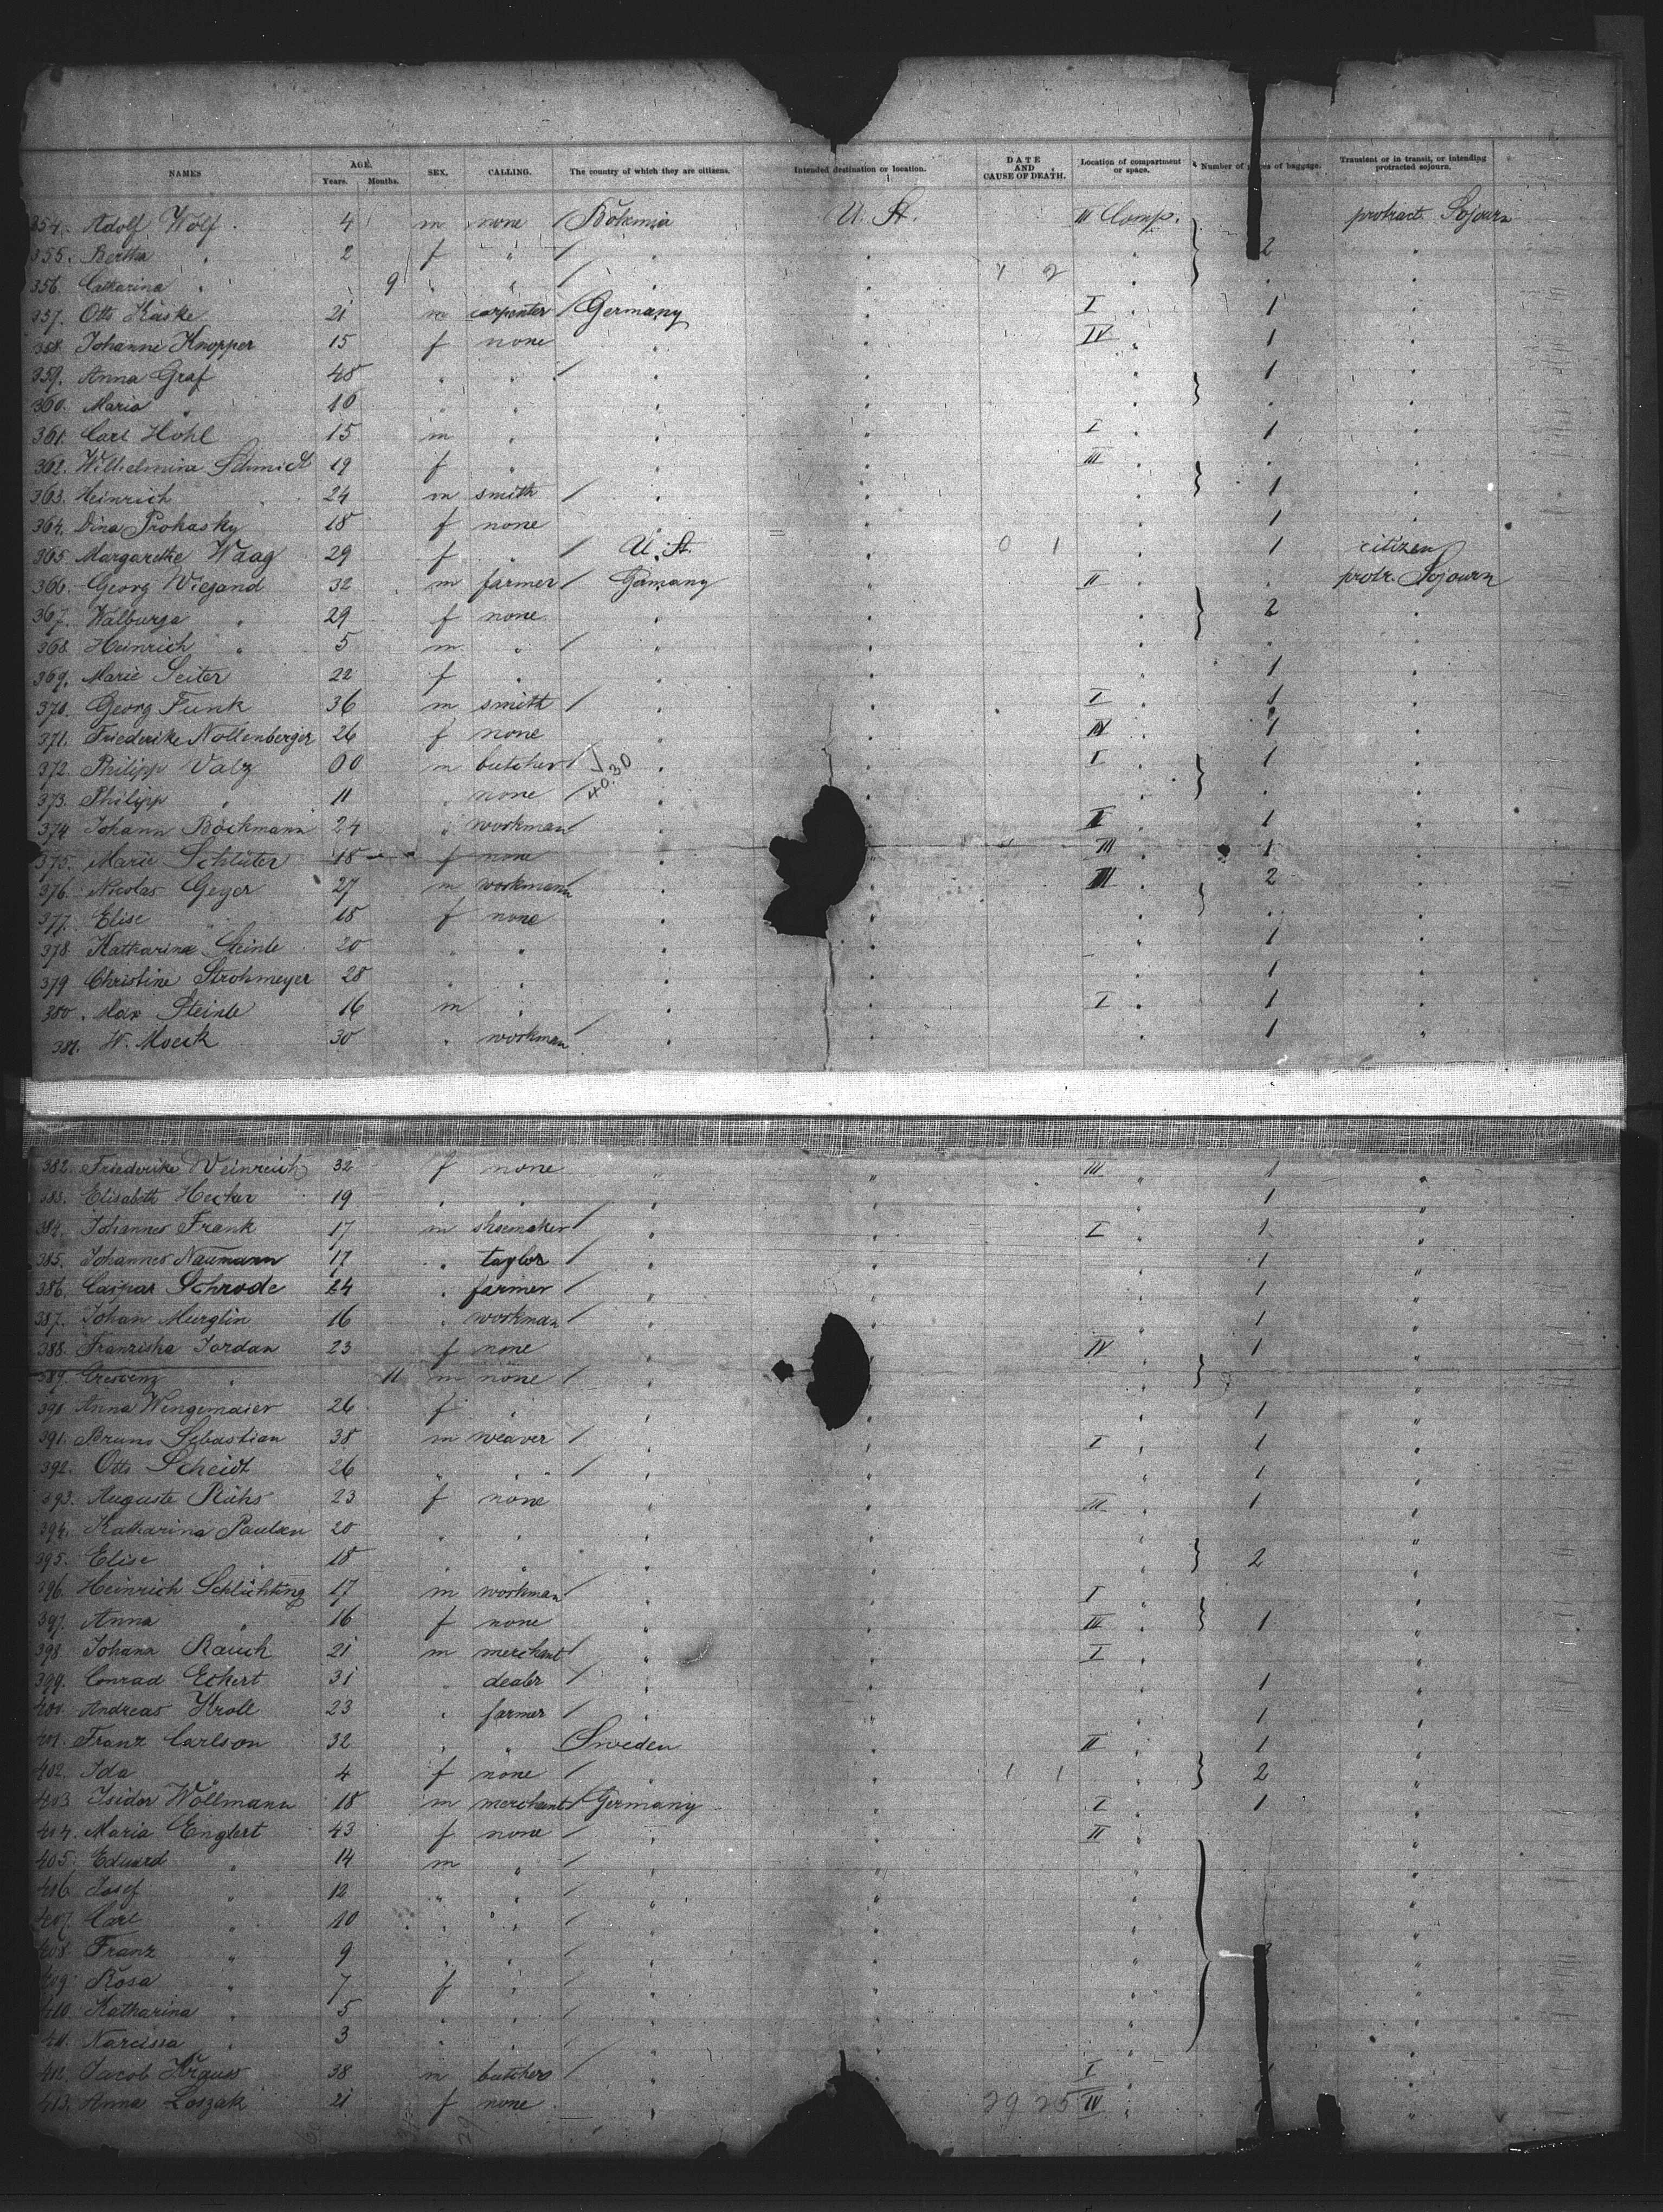 NAMES AGE. Years. Months. SEX. CALLING. The country of which they are citizens. Intended destination or location. DATE AND CAUSE OF DEATH. Location of compartment or space. Number of es of baggage. Transient or in transit, or intending protracted sojourn.
354. Adolf Wolf 4 m none Bohemia U. St. III Comp. protract. Sojourn
355. Bertha " 2 f " / " " " 2 "
356. Catharina " 9 " " / " " 1 2 " " "
357. Otto Kaske 21 m carpenter / Germany " I " 1 "
358. Johanne Knopper 15 f none " " IV " 1 "
359. Anna Graf 48 " " / " " " 1 "
360. Maria " 10 " " " " " " "
361. Carl Hohl 15 m " " " I " 1 "
362. Wilhelmina Schmidt 19 f " " " III " " "
363. Heinrich 24 m smith / " " " 1 "
364. Dina Prohasky 18 f none " " " 1 "
365. Margarethe Waag 29 f " / U. St. " 0 1 " 1 citizen
366. Georg Wiegand 32 m farmer / Germany " II " " protr. Sojourn
367. Walburga " 29 f none " " " 2 "
368. Heinrich " 5 m " / " " " " "
369. Marie Seiter 22 f " " " " 1 "
370. Georg Funk 36 m smith / " " I " 1 "
371. Friederike Nollenberger 26 f none " " IV " 1 "
372. Philipp Valz 00 m butcher / 40.30 " " I " 1 "
373. Philipp " 11 " none / " " " " "
374. Johann Böckmann 24 " workman / " " I " 1 "
375. Marie Schlüter 18 f none " " III " 1 "
376. Nicolas Geyer 27 m workman / " " III " 2 "
377. Elise " 18 f none " " " " "
378. Katharina Steinle 20 " " " " " 1 "
379. Christine Strohmeyer 28 " " " " " 1 "
380. Max Steinle 16 m " " " I " 1 "
381. W. Mock 30 " workman / " " " 1 "
382. Friederike Weinreich 32 f none " " III " 1 "
383. Elisabeth Hecker 19 " " " " " 1 "
384. Johannes Frank 17 m shoemaker / " " I " 1 "
385. Johannes Naumann 17 " taylor / " " " 1 "
386. Caspar Schrode 24 " farmer / " " " 1 "
387. Johan Murglin 16 " workman / " " " 1 "
388. Franziska Jordan 23 f none " " IV " 1 "
389. Crescenz " 11 m none / " " " "
390. Anna Wengemaier 26 f " " " " 1 "
391. Bruno Sebastian 38 m weaver / " " I " 1 "
392. Otto Scheidt 26 " " / " " " 1 "
393. Auguste Rühs 23 f none " " III " 1 "
394. Katharina Paulsen 20 " " " " " "
395. Elise " 18 " " " " " 2 "
396. Heinrich Schlichting 17 m workman / " " I " "
397. Anna " 16 f none " " III " 1 "
398. Johann Rauch 21 m merchant / " " I " "
399. Conrad Eckert 31 " dealer / " " " 1 "
400. Andreas Kroll 23 " farmer / " " " 1 "
401. Franz Carlson 32 " " Sweden " II " 1 "
402. Ida " 4 f none / " " 1 1 " 2 "
403. Isidor Wollmann 18 m merchant / Germany " I " 1 "
404. Maria Englert 43 f none / " " II " "
405. Eduard " 14 m " / " " " "
406. Josef " 12 " " / " " " "
407. Carl " 10 " " / " " " "
408. Franz " 9 " " / " " " "
409. Rosa " 7 f " / " " " "
410. Katharina " 5 " " / " " " "
411. Narcissa " 3 " " / " " " "
412. Jacob Krauss 38 m butcher / " " I " 1 "
413. Anna Loszak 21 f none " " 29 25 IV " "